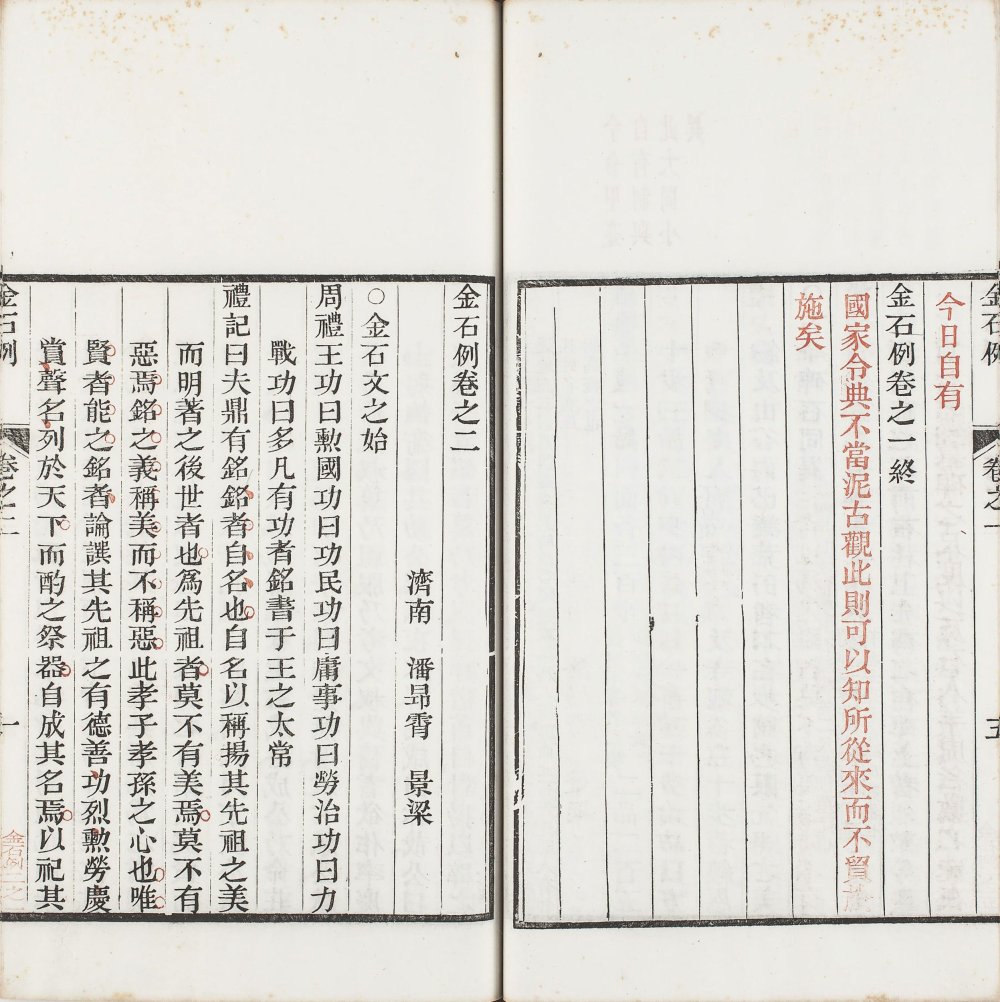 金石例
卷之一
五
今日自有
金石例卷之一終
國家令典不當泥古觀此則可以知所從來而不貿於
施矣
金石例卷之二
濟南 潘昻霄 景梁
○金石文之始
周禮王功曰勲國功曰功民功曰庸事功曰勞治功曰力
戰功曰多凡有功者銘書于王之太常
禮記曰夫鼎有銘銘者自名也自名以稱揚其先祖之美
而明著之後世者也爲先祖者莫不有美焉莫不有
惡焉銘之義稱美而不稱惡此孝子孝孫之心也唯
賢者能之銘者論譔其先祖之有德善功烈勲勞慶
賞聲名列於天下而酌之祭器自成其名焉以祀其
金石例
卷之二
一
金石例二之